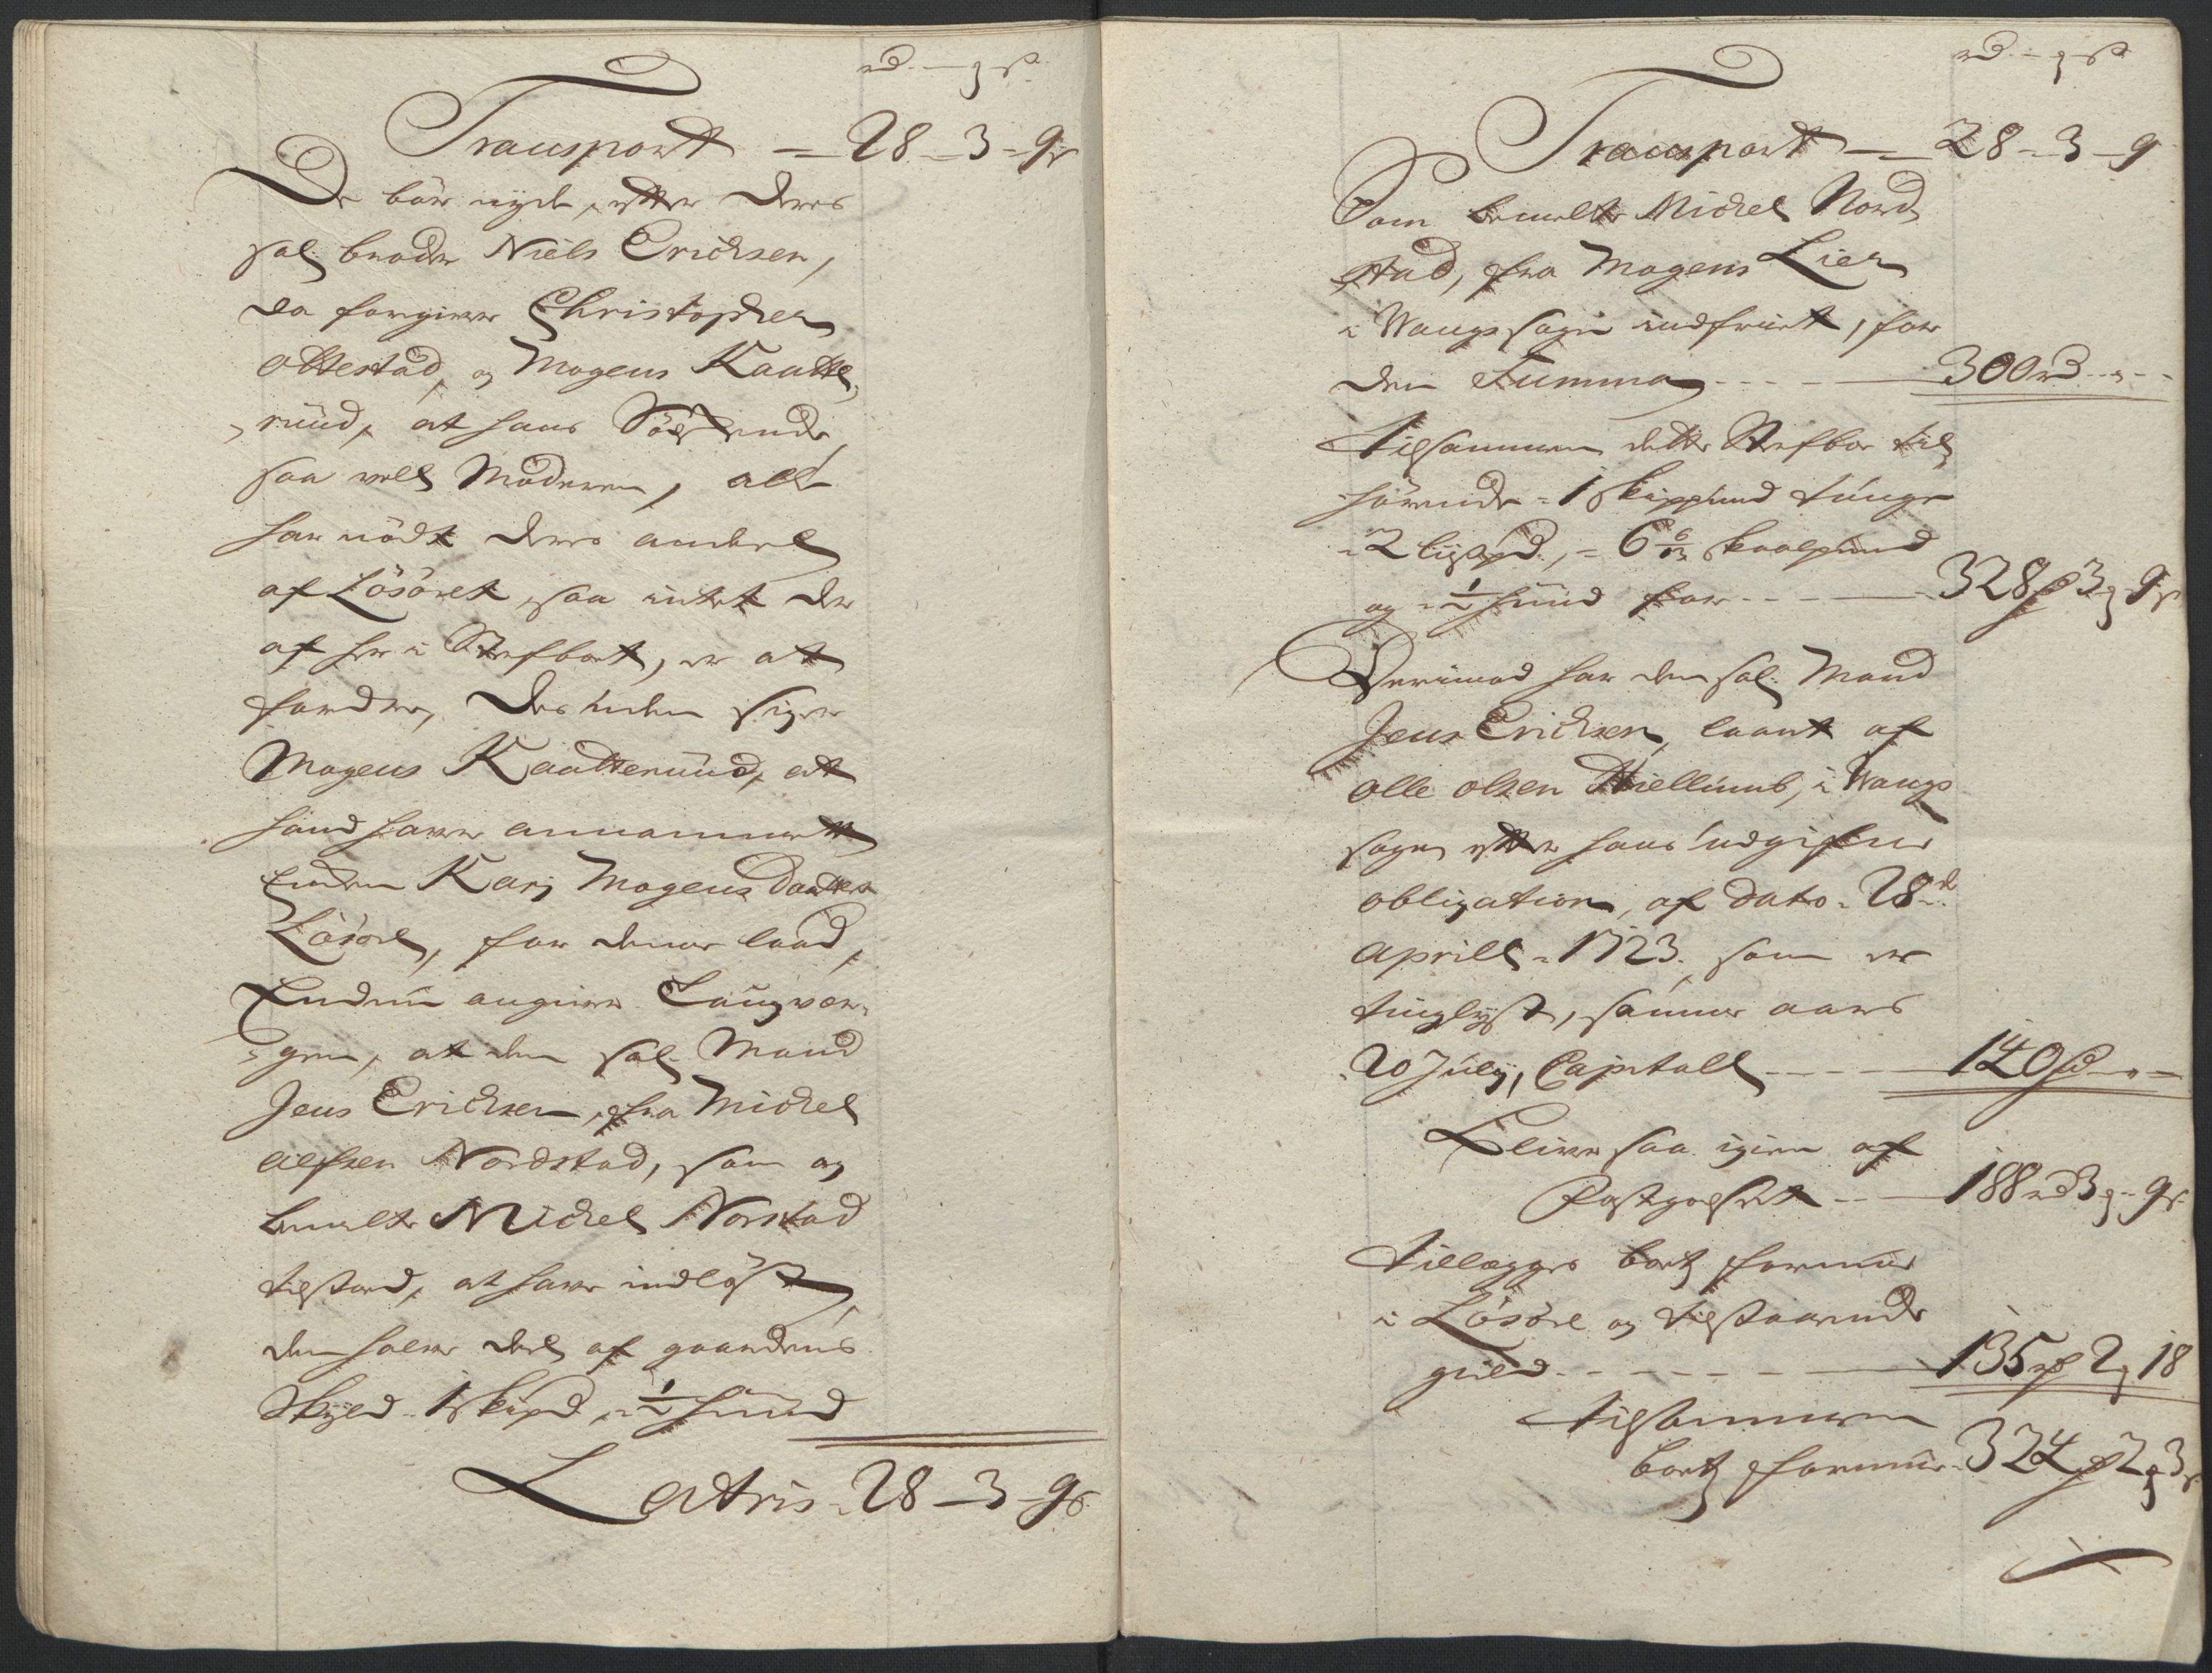 rd - q - s
Transport - 28 - 3 - 9 s
De bör nyde, efter deres
Sal broder Niels Erichsen,
da foregiver Christopher
Ottestad, og Mogens Kaatte,
rüüd, at hans Södskende,
saa vell Moderen, all
har nödt deres andeel
af Lösöret, saa intet der
af her i Sterfboet, er at
fordre, Des uden siger
Mogens Kaatterüüd, at
hand haver annammett
Enken Karj Mogens Daatters
Lösöre, for denne laad,
Endnu angiver Laugvær,
gen, at den Sal. Mand
Jens Erichsen, fra Michel
Nordstad, som og
bemelte Michel Norstad
tilstoed, at have indlöst
den halve deel af gaardens
Skyld - 1 Skipd, - 1/2 hüüd
Latris - 28 - 3 - 9 s
rd - q - s
Transport - 28 - 3 - 9
Som bemelte Michel Nord,
stad, fra Mogens Lier
i Wangs Sogn indfriet, for
den Summa - - - 300 rd - - -
Tilsammen dette Sterfboe til,
hörende - 1 Skippund tünge
- 2 lispd, - 6 Skaalpund
og - 1/2 hüüd for - - - 328 rd 3 q 9 s
Derimod har den Sal. Mand
Jens Erichsen, laant af
Olle Olsen, i Wangs
Sogn efter hans udgifne
Obligation, af Dato - 28 d
Aprill - 1723. som er
tinglyst, samme aars
20 July, Capitall - - - 140 rd - - -
Bliver saa igien af
Postgodset - - 188 rd 3 q - 9 s
Tillægges boets formue
i Lösöre og tilstaaende
gield - - - - - 135 rd 2 q 18
Tilsammen
boets formue - 324 rd 2 q 3 s